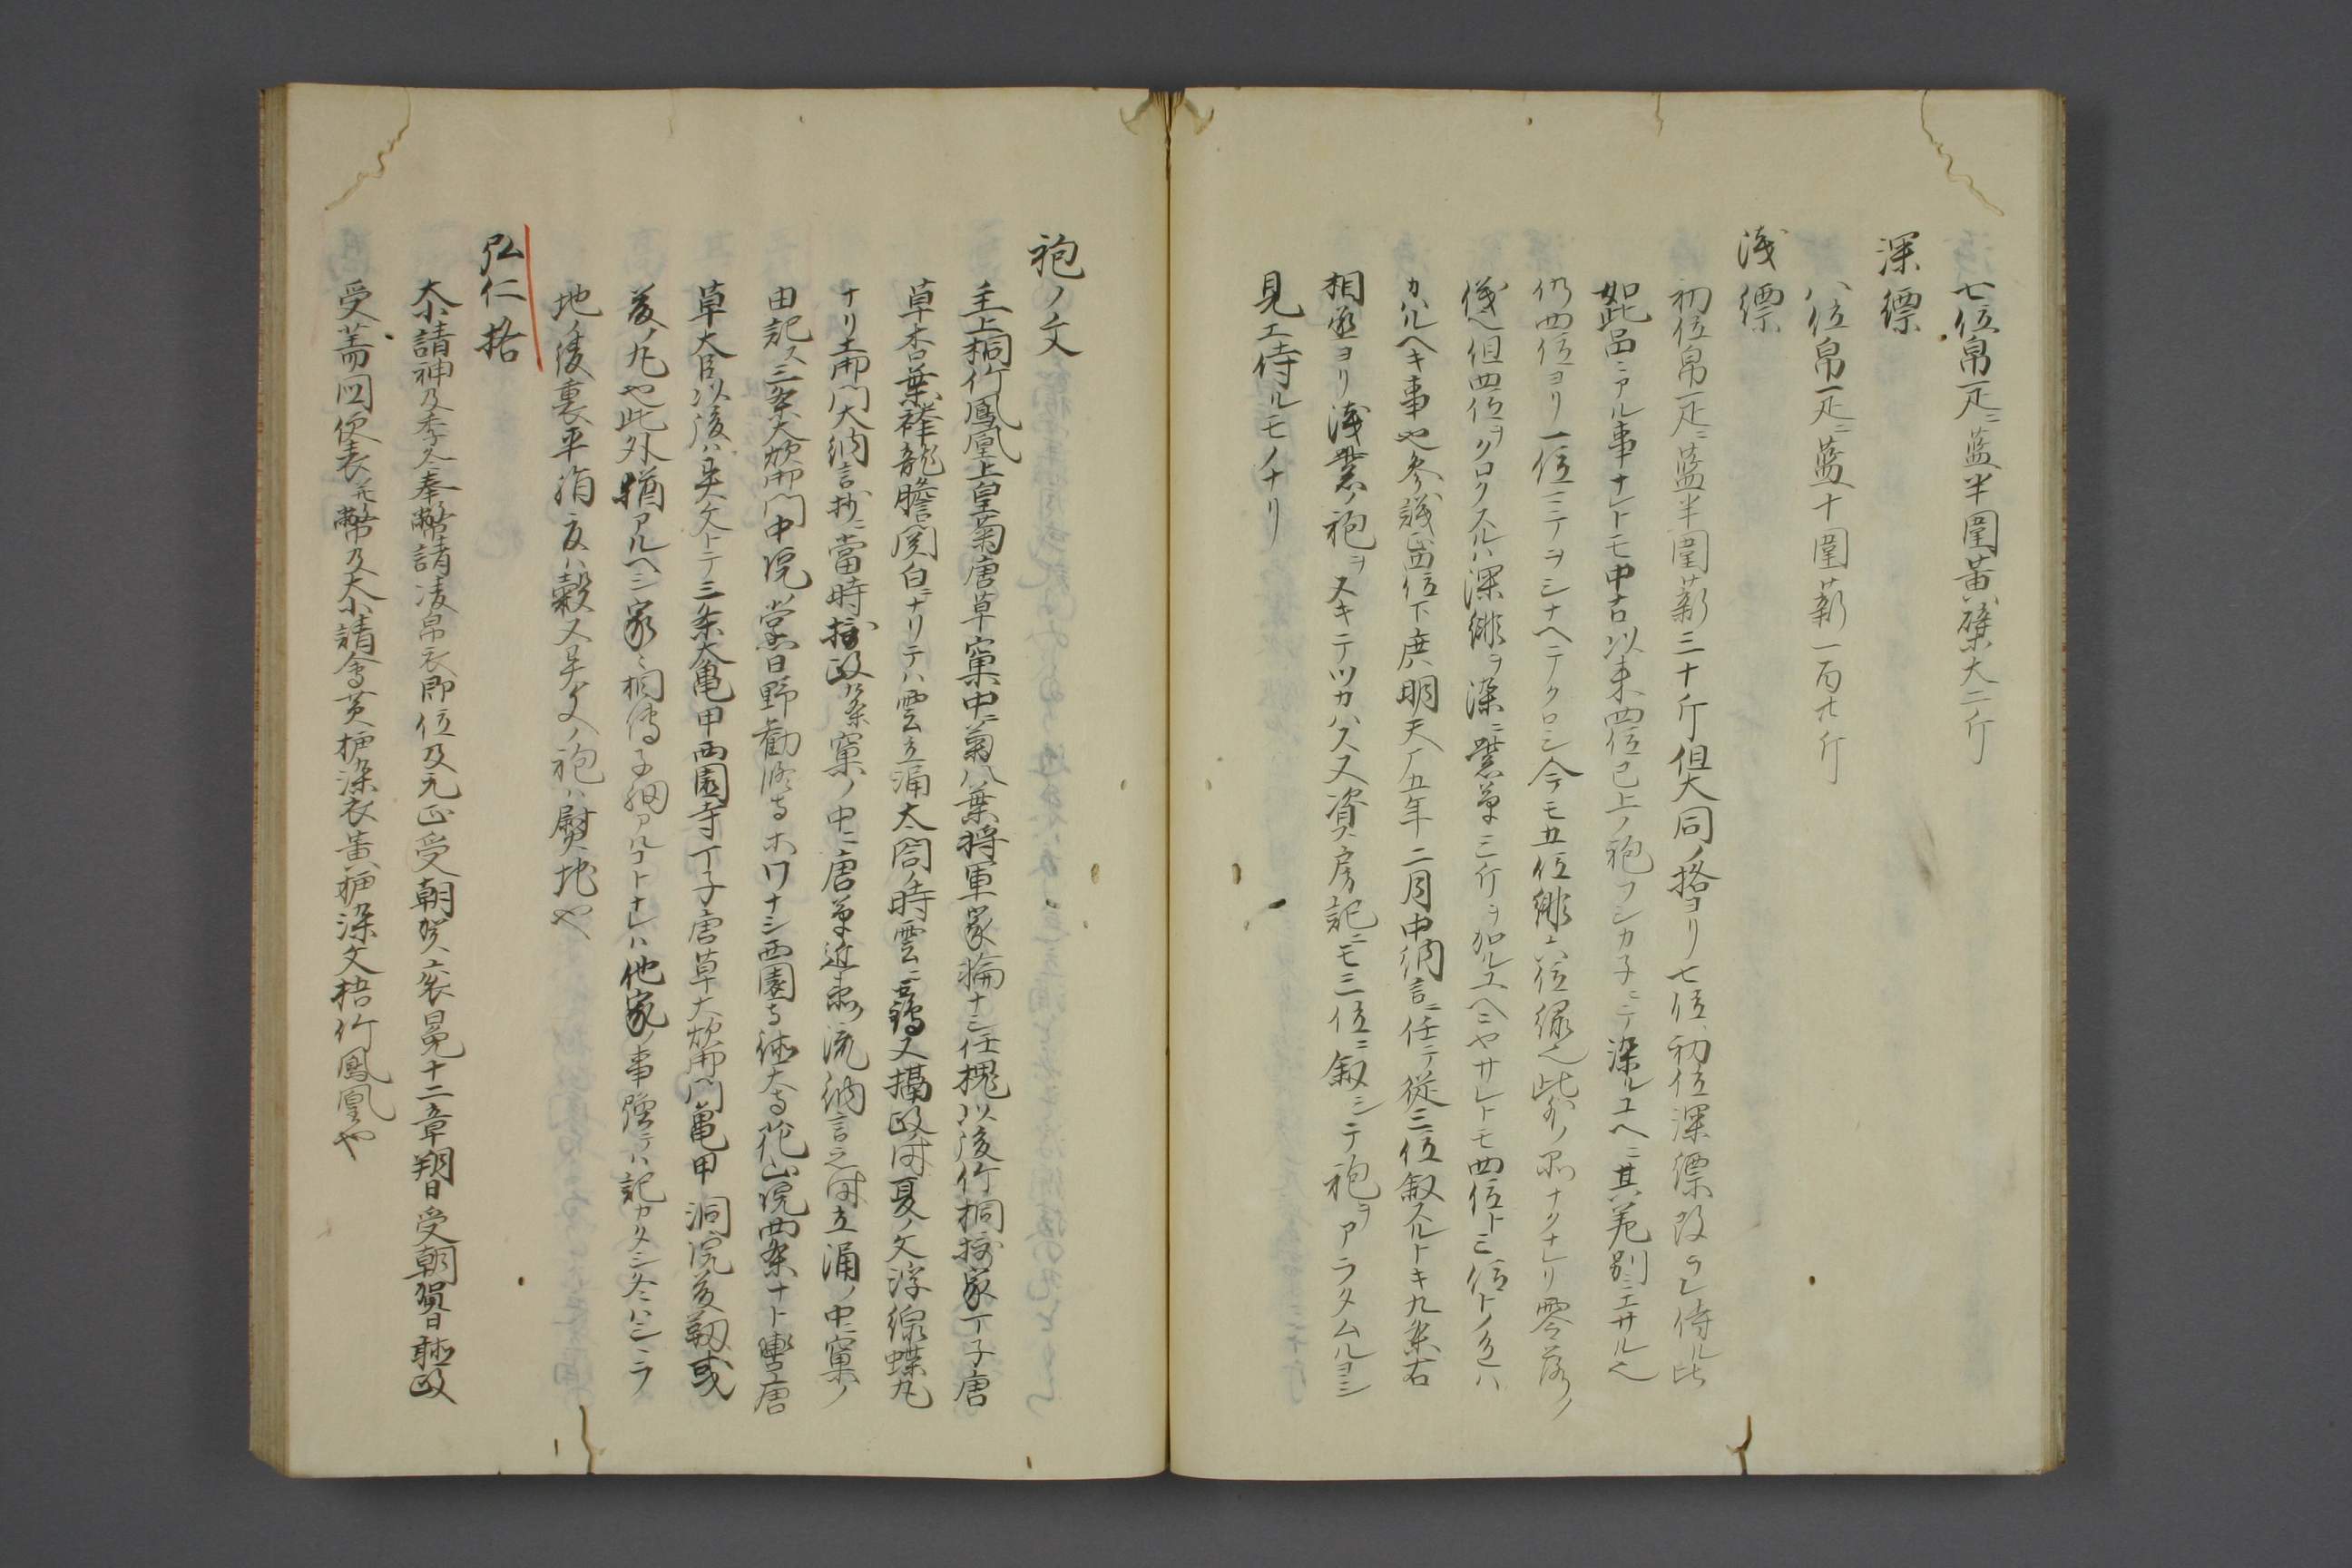 七位帛一疋ニ藍半圍黄蘗大二斤
深縹
八位帛一疋ニ藍十圍薪一百廿斤
浅縹
初位帛一疋ニ藍半圍薪三十斤但大同ノ格ヨリ七位初位深縹改ラレ侍ル此
如此品ニアル事ナレトモ中古以来四位已上ノ袍フシカネニテ染ルユヘニ其差別ミエサル也
仍四位ヨリ一位ミテヲシナヘテクロシ今モ五位緋六位緑也此外ノ品ナクナレリ零落ノ
儀也但四位ヲクロクスルハ深緋ヲ染ニ紫草三斤ヲ加ルユヘニヤサレトモ四位ト三位トノ色ハ
カハルヘキ事也参議正四位下庶明天广五年二月中納言ニ任シテ従三位叙スルトキ九条右
相丞ヨリ浅紫ノ袍ヲヌキテツカハス又資房記ニモ三位ニ叙シテ袍ヲアラタムルヨシ
見エ侍ルモノナリ
袍ノ文
主上桐竹鳳凰上皇菊唐草窠中ニ菊八葉将軍家輪ナシ任槐以後竹桐摂家丁子唐
草木告葉襷龍膽関白ニナリテハ雲立涌大閤ノ時雲ニ鶴又摂政時夏ノ文浮線蝶丸
ナリ土御門大納言抄ニ當時摂政ハ条窠ノ中ニ唐草近来流納言之時立涌ノ中ニ窠ノ
由記ス三条大炊御門中院ノ堂日野勧修寺ホワナシ西園寺徳大寺花山院四条ナト轡唐
草大臣以後ハ異文トテ三条大亀甲西園寺丁子唐草大炊御門亀甲洞院菱靱或
菱ノ丸也此外猶アルヘシ家々相傳子細アルコトナレハ他家ノ事強テハ記カタシ冬ハシヽラ
地ノ綾裏平絹夏ハ縠又異文ノ袍ハ熨地也
弘仁格
大小諸神及季冬奉幣諸凌帛衣即位及元正受朝賀ニ袞冕十二章朔日受朝賀日聴政
受蕃国使表并幣及大小諸會黄櫨染衣黄櫨染文梧竹鳳凰也